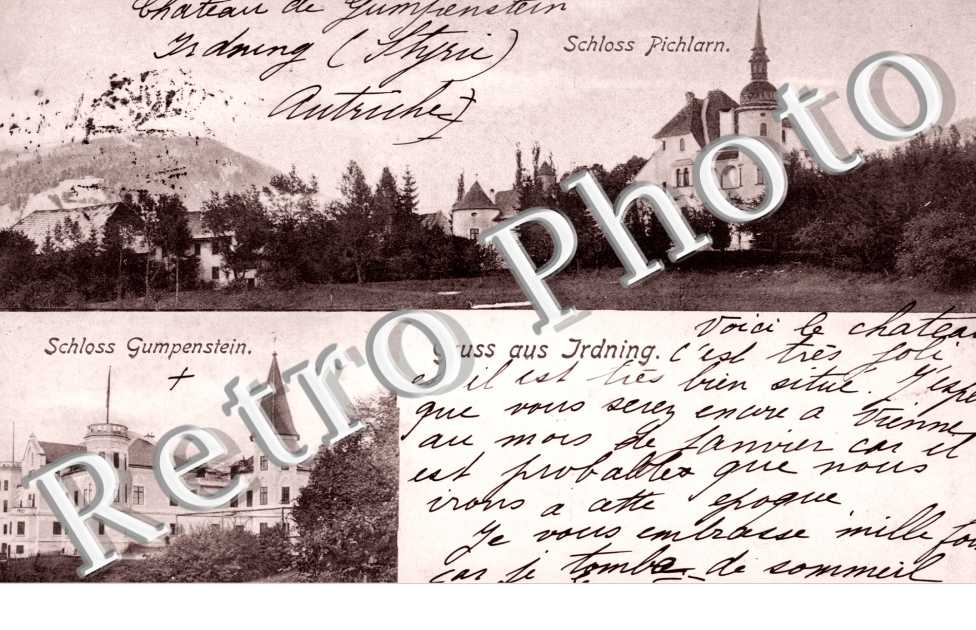 Chateau de Gumpenstein
Irdning (Styrie)
Autriche
Schloss Pichlarn.
Schloss Gumpenstein.
Gruss aus Irdning.
Voici le chateau
c'est très joli
et il est très bien situé. J'espè
que vous serez encore a Vienne
au mois de Janvier car il
est probable que nous
irons a cette epoque
Je vous embrasse mille foi
car je tombe de sommeil
Retro Photo